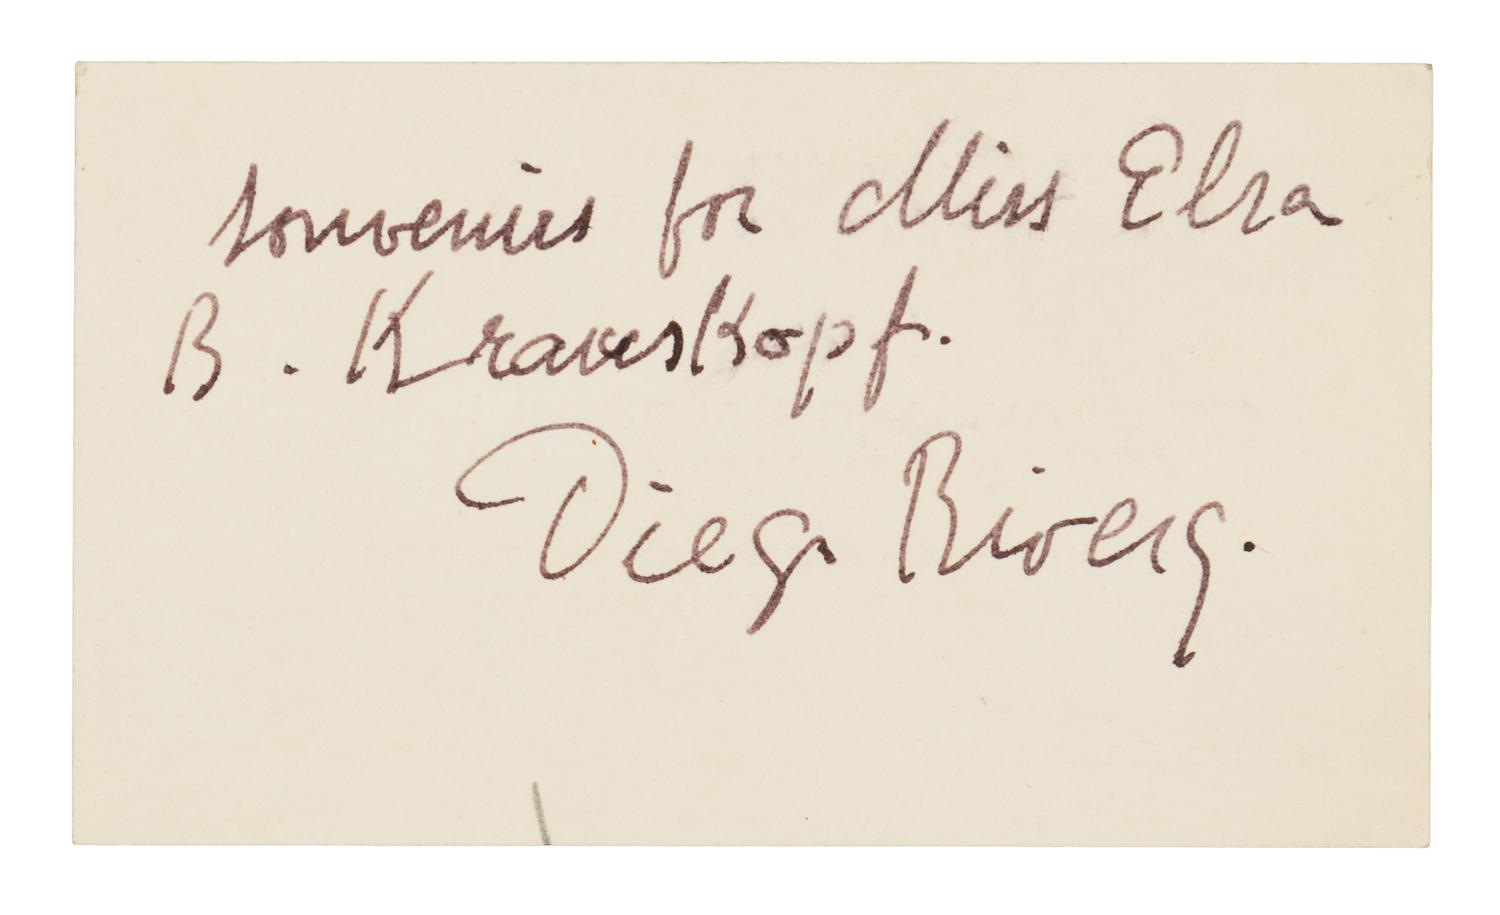 souvenirs for Miss Elsa
B. Kraueskopf.
Diego Rivera.